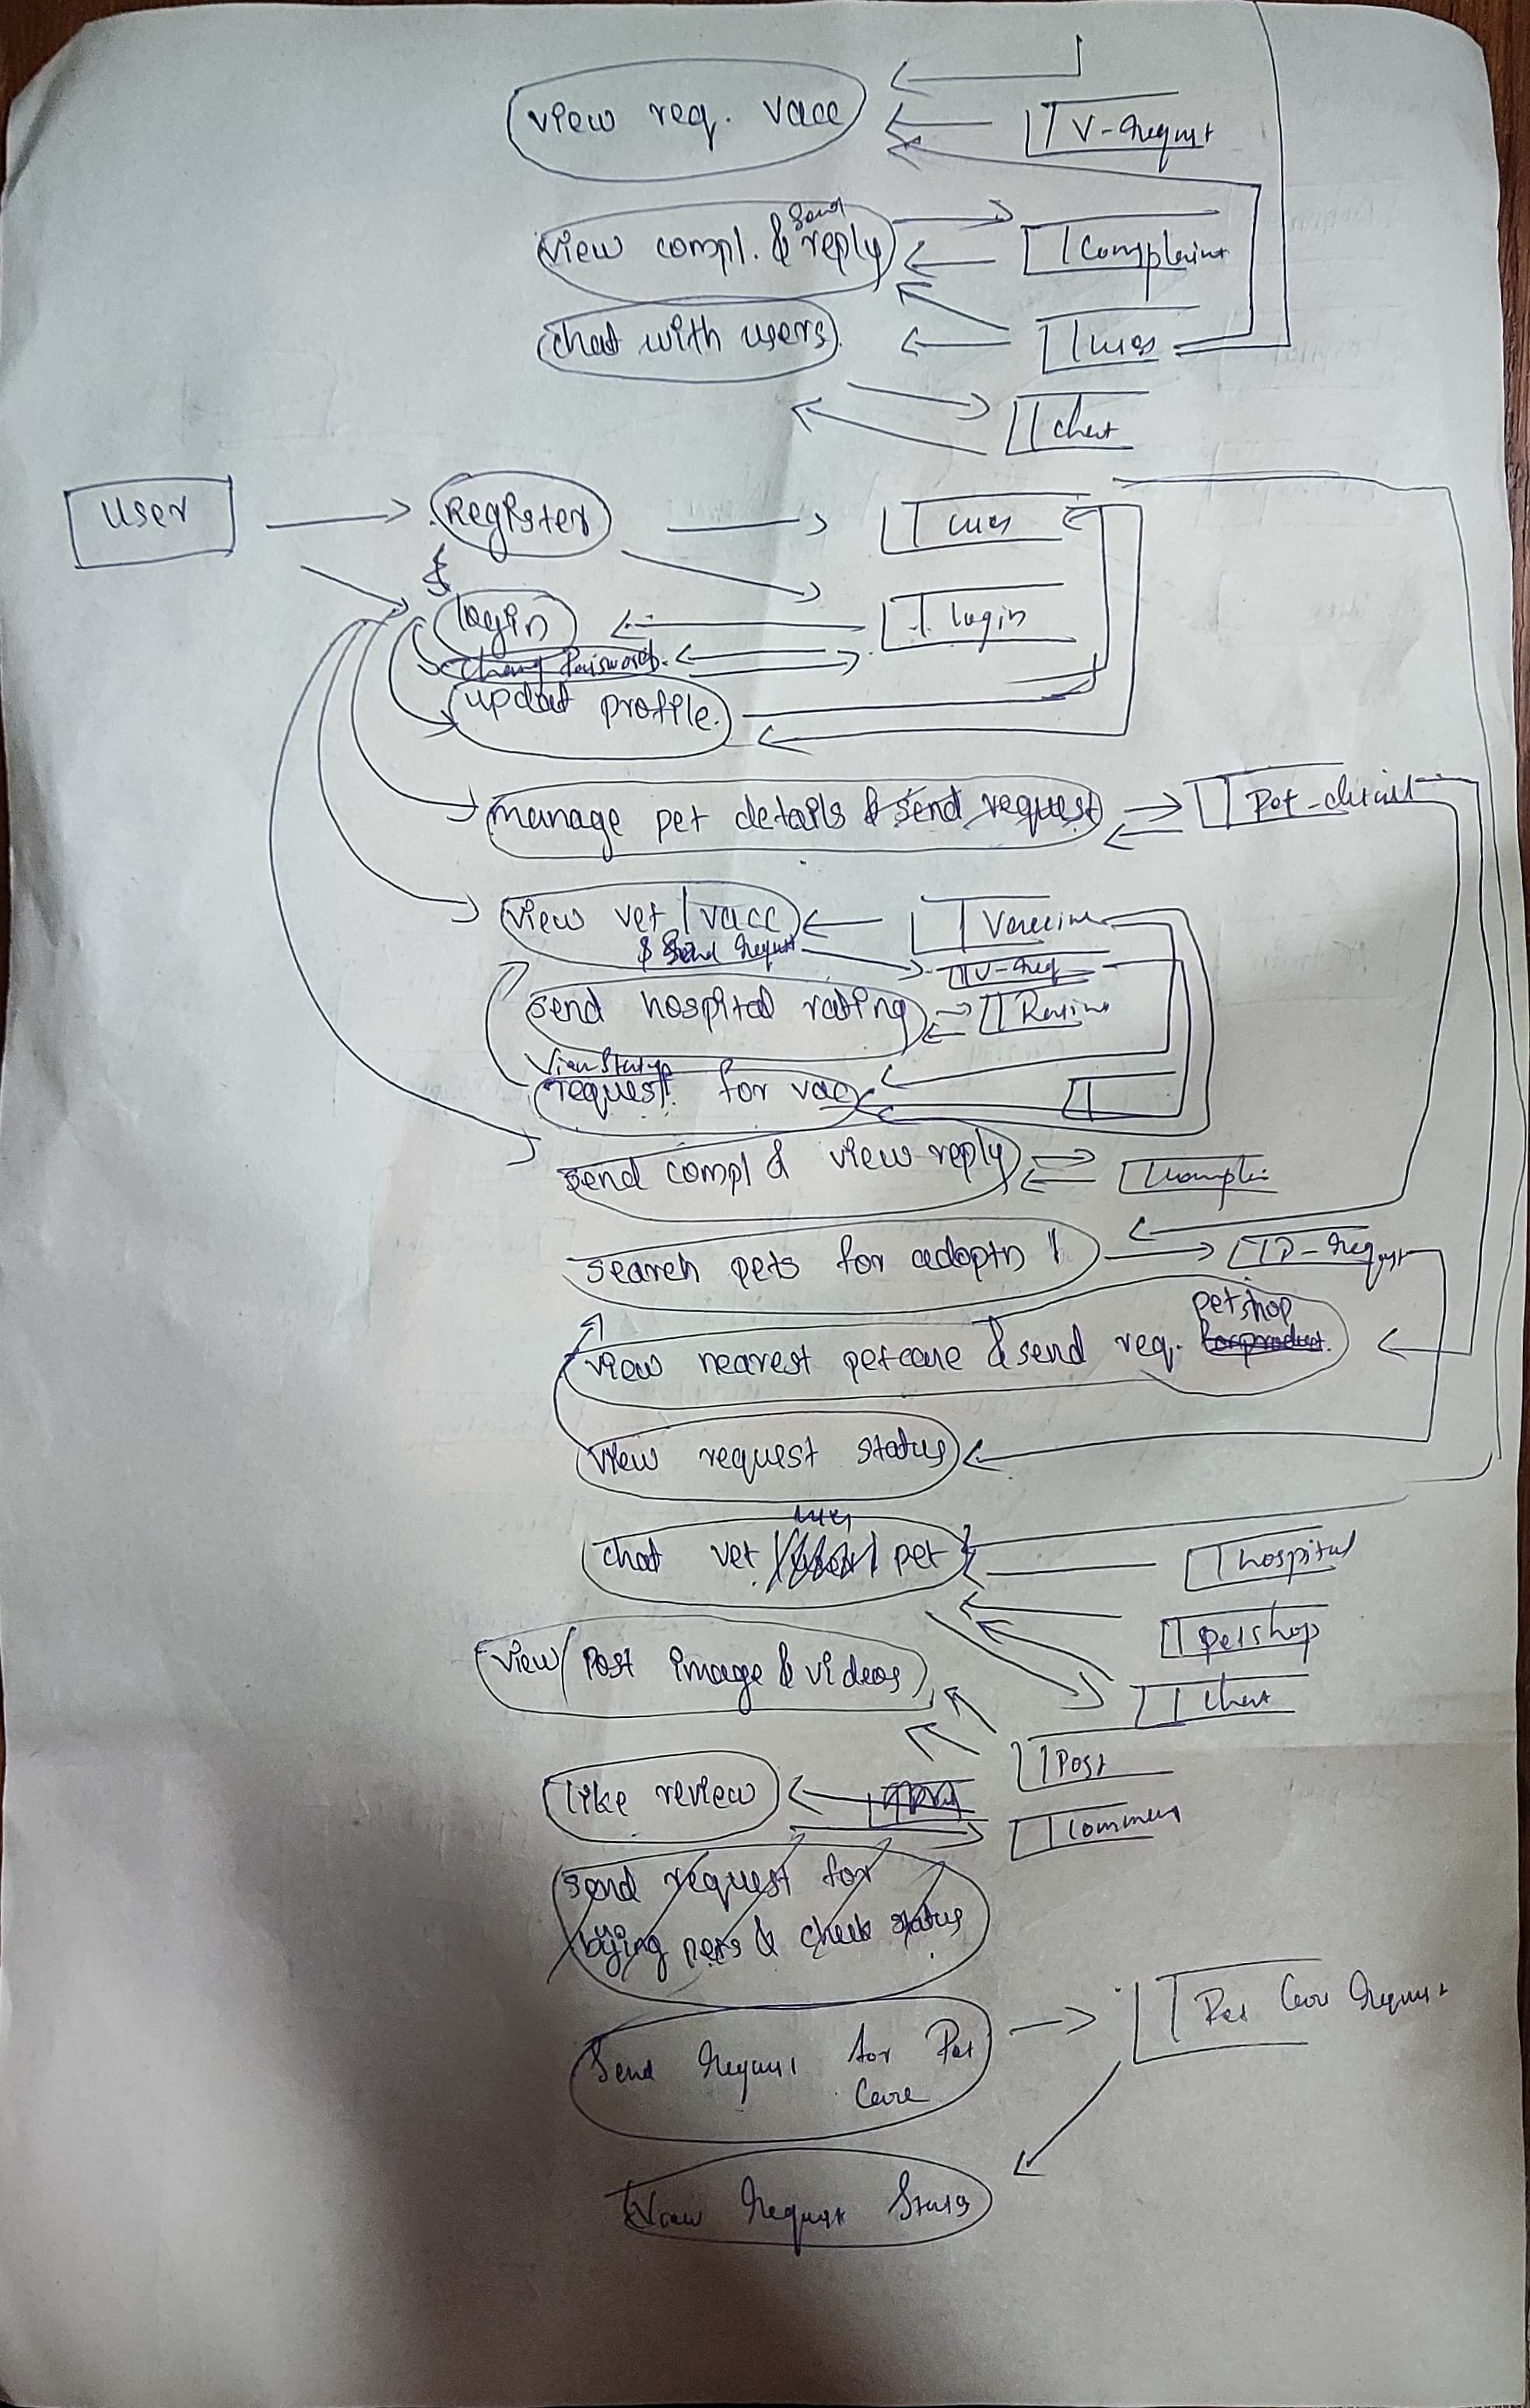 view req. vacc
V-Request
send
view compl. & reply
Complaint
chat with users
chat
user
Register
login
login
Chang Password
updat profile.
manage pet details & send request
Pet-detail
view vet/vacc
& Send Request
V-Req
send hospital rating
View Status
request for vac
send compl & view reply
search pets for adoptn
P-Request
petshop
view nearest petcare & send req.
view request status
chat vet / pet
hospital
petshop
chat
view/Post image & videos
Post
like review
send request for
bying pets & check status
Send Request for Pet
Care
Pet Care Request
View Request Status